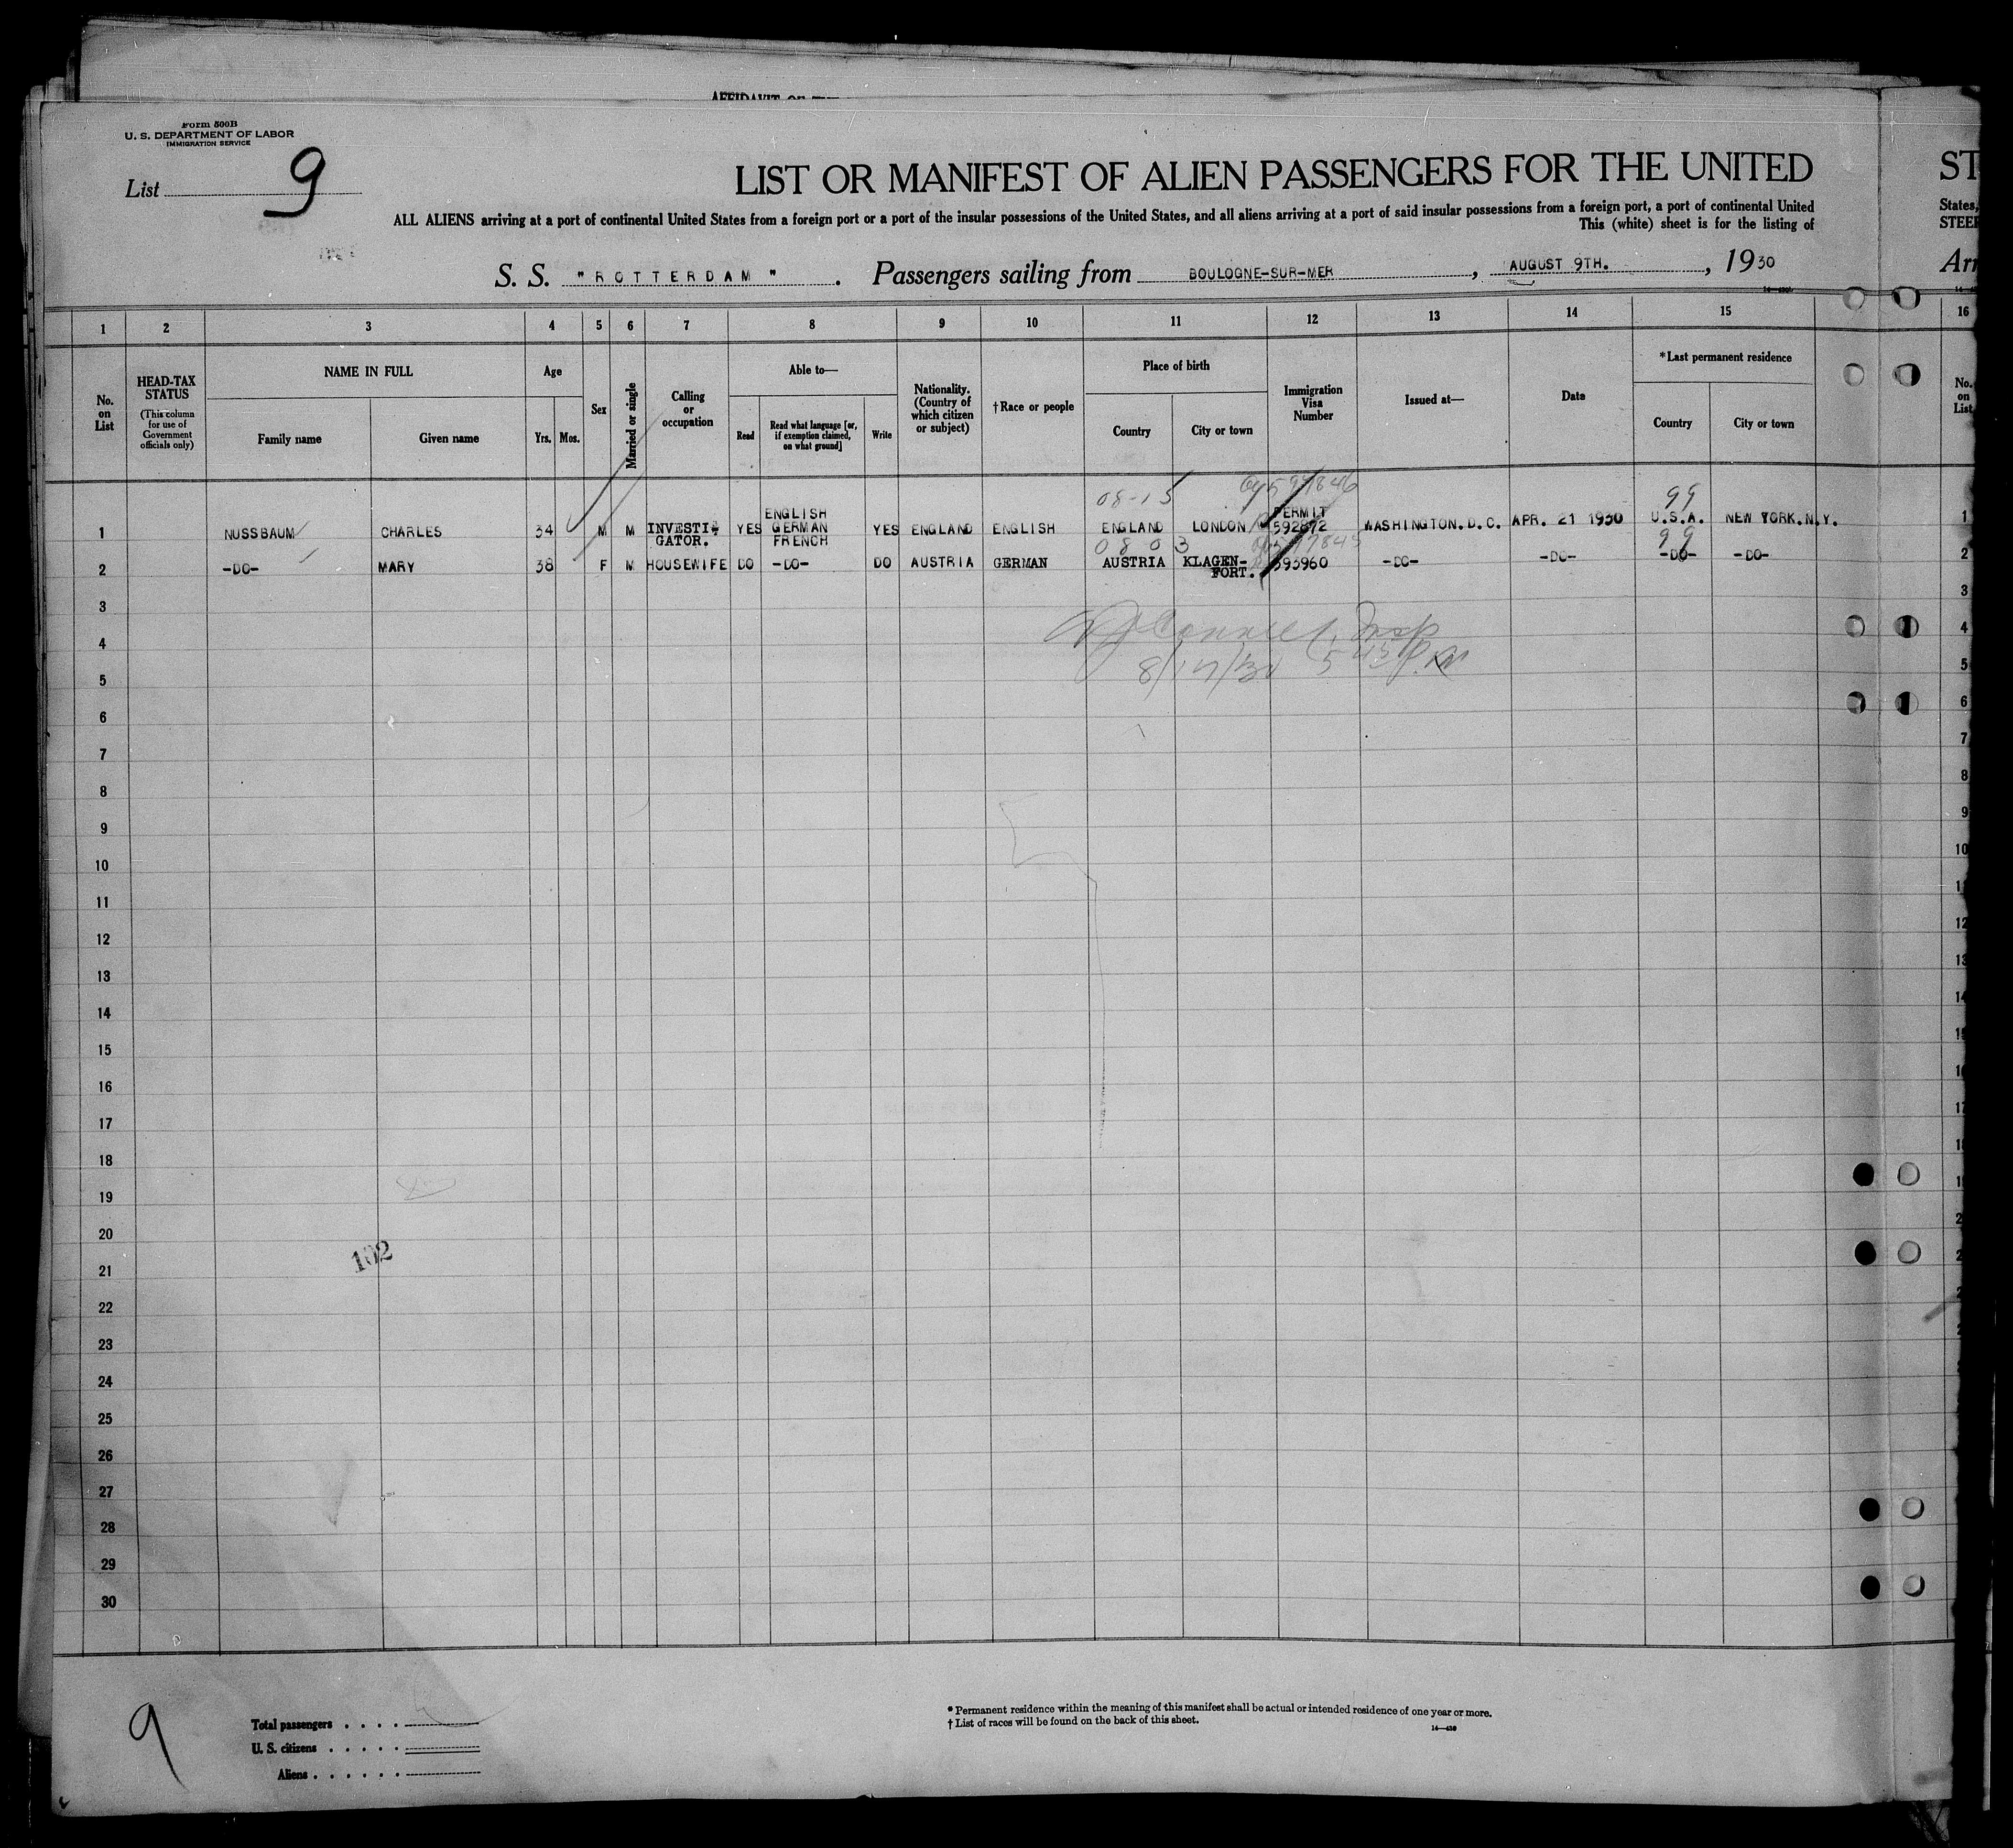 AFFIDAVIT OF THE
Form 500B
U. S. DEPARTMENT OF LABOR
IMMIGRATION SERVICE
List 9
LIST OR MANIFEST OF ALIEN PASSENGERS FOR THE UNITED
ST
ALL ALIENS arriving at a port of continental United States from a foreign port or a port of the insular possessions of the United States, and all aliens arriving at a port of said insular possessions from a foreign port, a port of continental United
States,
This (white) sheet is for the listing of
STEE
S. S. "ROTTERDAM". Passengers sailing from BOULOGNE-SUR-MER, AUGUST 9TH., 1930
Arr
1 2 3 4 5 6 7 8 9 10 11 12 13 14 15 16
No. on List
HEAD-TAX STATUS
(This column for use of Government officials only)
NAME IN FULL
Family name
Given name
Age
Yrs. Mos.
Sex
Married or single
Calling or occupation
Able to—
Read
Read what language [or, if exemption claimed, on what ground]
Write
Nationality. (Country of which citizen or subject)
†Race or people
Place of birth
Country
City or town
Immigration Visa Number
Issued at—
Date
*Last permanent residence
Country
City or town
No. on List
08-15 99
1 NUSSBAUM CHARLES 34 M M INVESTI-GATOR. YES ENGLISH GERMAN FRENCH YES ENGLAND ENGLISH ENGLAND LONDON PERMIT 592872 WASHINGTON.D.C. APR. 21 1930 U.S.A. NEW YORK.N.Y. 1
0803 99
2 -DO- MARY 38 F M HOUSEWIFE DO -DO- DO AUSTRIA GERMAN AUSTRIA KLAGEN-FORT. 593960 -DO- -DO- -DO- -DO- 2
3 3
4 Insp 4
5 8/17/30 5 45 P.M 5
6 6
7 7
8 8
9 9
10 10
11
12 12
13
14
15
16
17
18
19
20
102
21
22
23
24
25
26
27
28
29
30
9
Total passengers
U. S. citizens
Aliens
* Permanent residence within the meaning of this manifest shall be actual or intended residence of one year or more.
† List of races will be found on the back of this sheet.